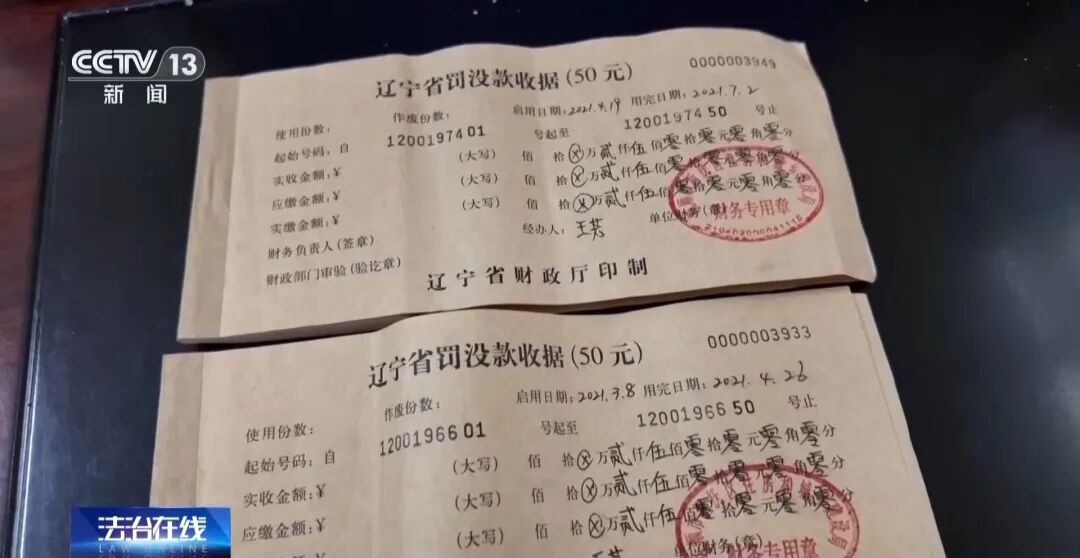 CCTV 13
新闻
辽宁省罚没款收据(50元)
0000003949
使用份数:
作废份数:
启用日期:2021.4.19 用完日期:2021.7.2
起始号码,自 1200197401 号起至 1200197450 号止
实收金额:¥ (大写) 佰 拾ⓧ万贰仟伍佰零拾零元零角零分
应缴金额:¥ (大写) 佰 拾ⓧ万贰仟伍佰零拾零元零角零分
实缴金额:¥ (大写) 佰 拾ⓧ万贰仟伍佰零拾零元零角零分
财务负责人(签章) 经办人: 单位财务(章)
财务专用章
财政部门审验(验讫章)
辽宁省财政厅印制
辽宁省罚没款收据(50元)
0000003933
使用份数:
作废份数:
启用日期:2021.3.8 用完日期:2021.4.26
起始号码:自 1200196601 号起至 1200196650 号止
实收金额:¥ (大写) 佰 拾ⓧ万贰仟伍佰零拾零元零角零分
应缴金额:¥ (大写) 佰 拾ⓧ万贰仟伍佰零拾零元零角零分
(大写) 佰 拾ⓧ万贰仟伍佰零拾零元零角零分
单位财务(章)
法治在线
LAW ONLINE